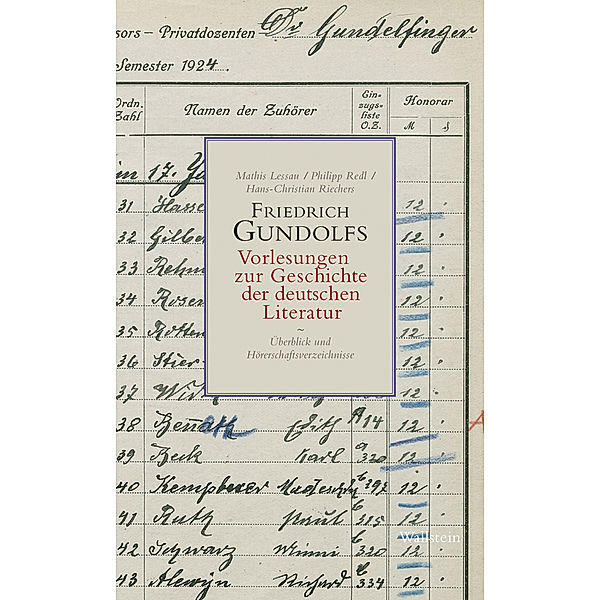 sors – Privatdozenten Dr. Gundelfinger
Semester 1924.
Ordn. Zahl
Namen der Zuhörer
Ein-
zugs-
liste
O.Z.
Honorar
M
im 17. 
Mathis Lessau / Philipp Redl /
Hans-Christian Riechers
FRIEDRICH
GUNDOLFS
Vorlesungen
zur Geschichte
der deutschen
Literatur
~
Überblick und
Hörerschaftsverzeichnisse
31 Hasse 12
32 Gilber 12
33 Rehm 12
34 Rosen 12
35 Rotten 12
36 Stier- 12
37 12
38 Edith A 14 12
39 Beck Karl a 320 12
40 Kemp 12
41 Ruth Paul b 315 12
42 Schwarz Winni b 320 12
43 Alewyn Richard b 334 12
Wallstein